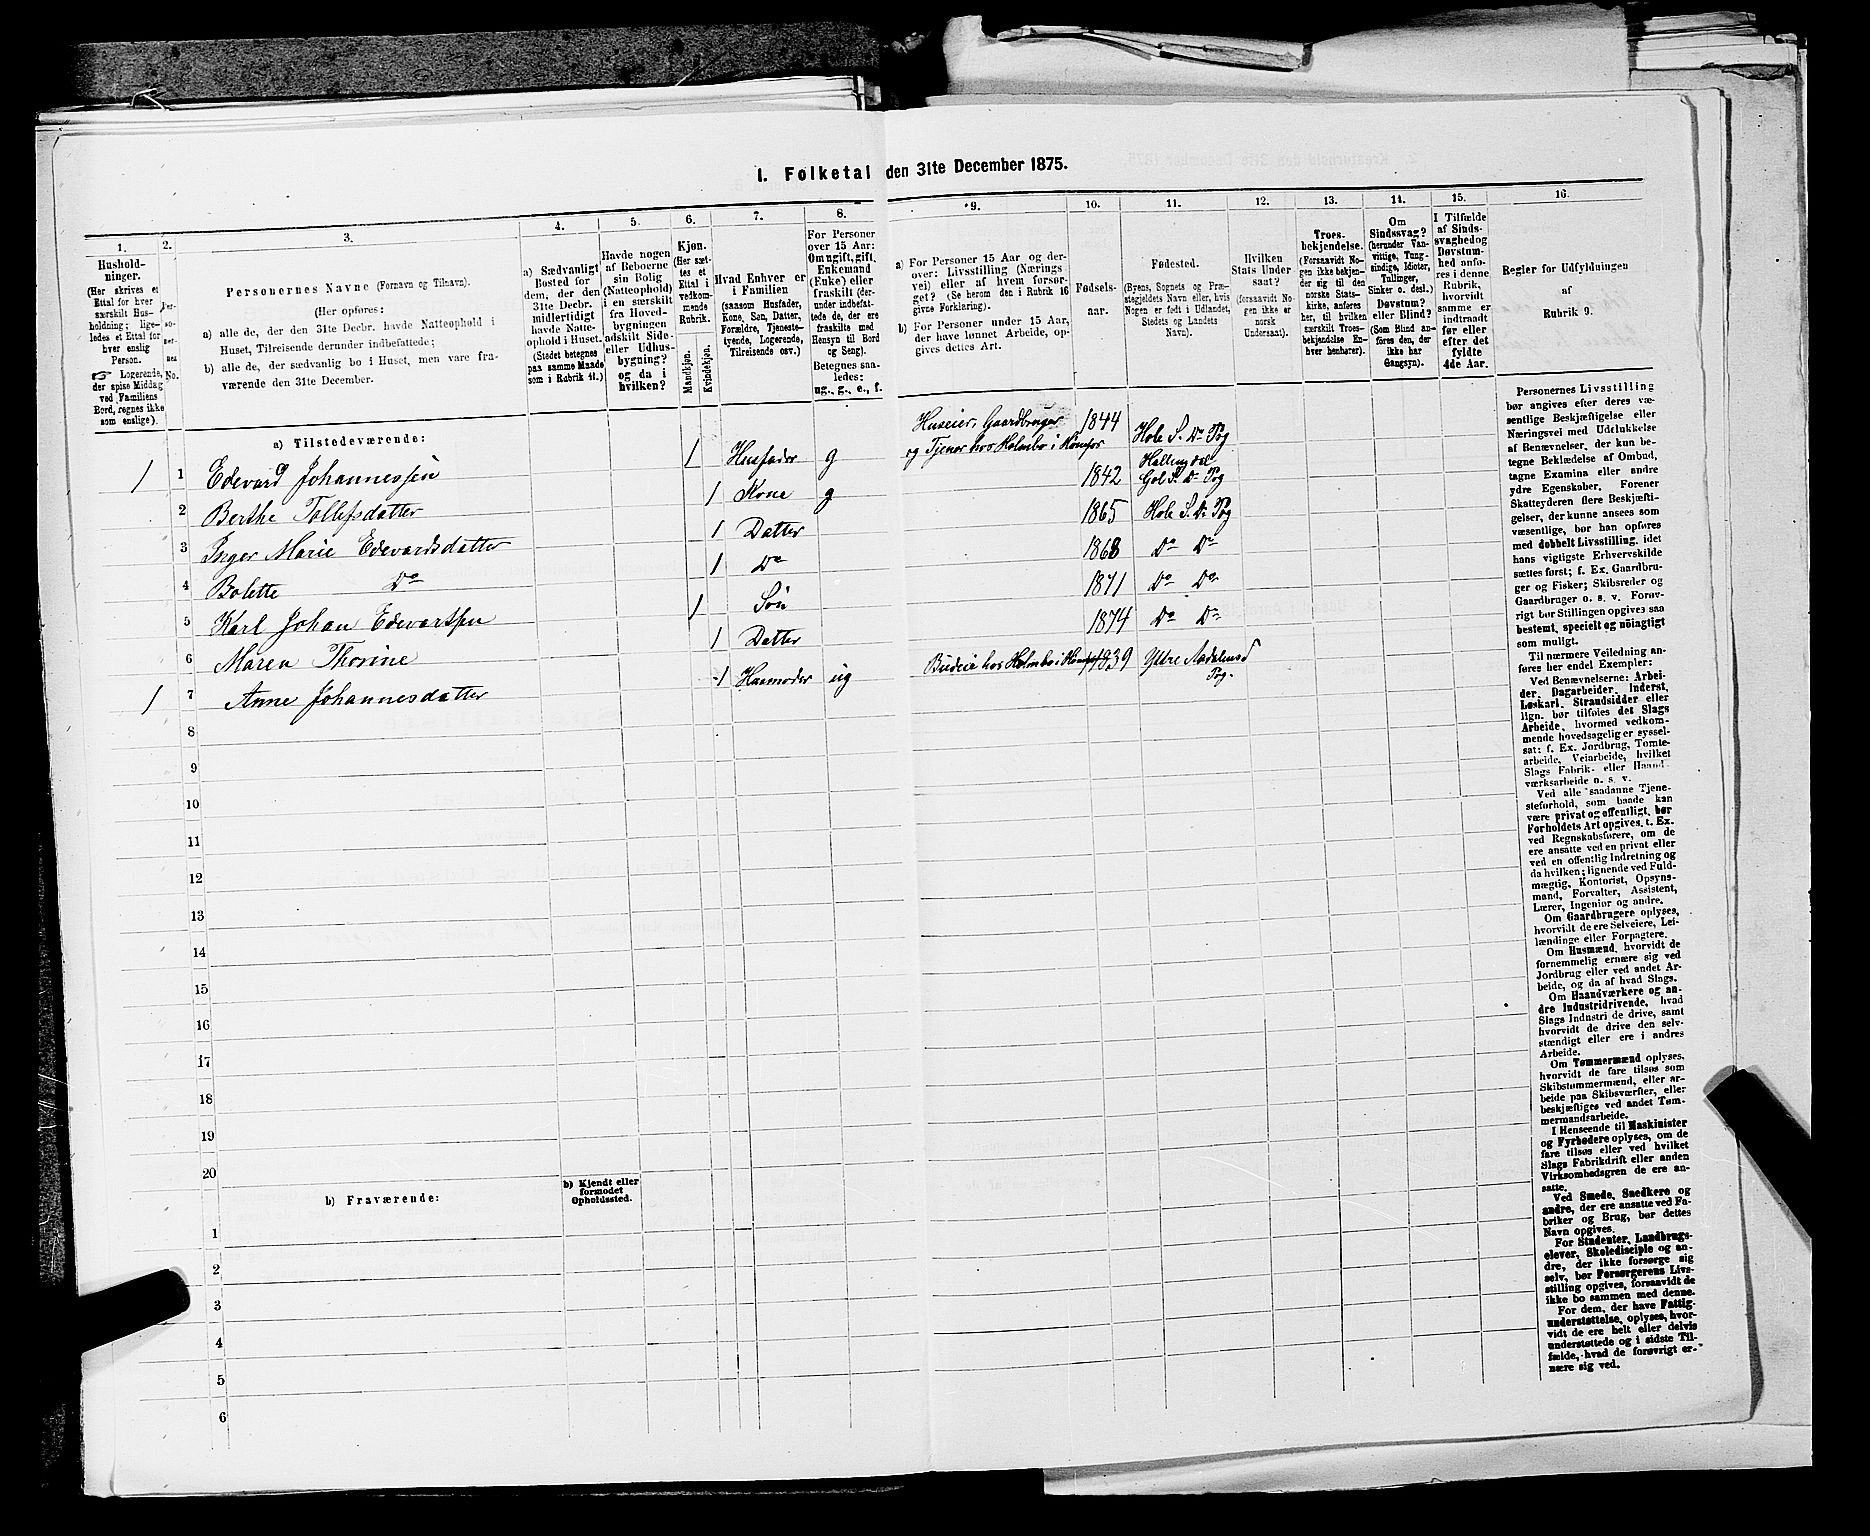 I. Folketal den 31te December 1875.
1.
Hushold-
ninger.
(Her skrives et
Ettal for hver
særskilt Hus-
holdning; lige-
ledes et Ettal for
hver enslig
Person.
☞ Logerende,
der spise Middag
ved Familiens
Bord, regnes ikke
som enslige).
2.
Per-
so-
ner-
nes
No.
3.
Personernes Navne (Fornavn og Tilnavn).
(Her opføres:
a) alle de, der den 31te Decbr. havde Natteophold i
Huset, Tilreisende derunder indbefattede;
b) alle de, der sædvanlig bo i Huset, men vare fra-
værende den 31te December.
4.
a) Sædvanligt
Bosted for
dem, der den
31te Decbr.
midlertidigt
havde Natte-
ophold i Huset.
(Stedet betegnes
paa samme Maade
som i Rubrik 11.)
5.
Havde nogen
af Beboerne
sin Bolig
(Natteophold)
i en særskilt
fra Hoved-
bygningen
adskilt Side-
eller Udhus-
bygning?
og da i
hvilken?
6.
Kjøn.
(Her sæt-
tes et
Ettal i
vedkom-
mende
Rubrik.
Mandkjøn.
Kvindekjøn.
7.
Hvad Enhver er
i Familien
(saasom Husfader,
Kone, Søn, Datter,
Forældre, Tjeneste-
tyende, Logerende,
Tilreisende osv.)
8.
For Personer
over 15 Aar:
Om ugift, gift,
Enkemand
(Enke) eller
fraskilt (der-
under indbefat-
tede de, der ere
fraskilte med
Hensyn til Bord
og Seng).
Betegnes saa-
ledes:
ug., g., e., f.
9.
a) For Personer 15 Aar og der-
over: Livsstilling (Nærings-
vei) eller af hvem forsør-
get? (Se herom den i Rubrik 16
givne Forklaring).
b) For Personer under 15 Aar,
der have lønnet Arbeide, op-
gives dettes Art.
10.
Fødsels-
aar.
11.
Fødested.
(Byens, Sognets og Præ-
stegjeldets Navn eller, hvis
Nogen er født i Udlandet,
Stedets og Landets
Navn).
12.
Hvilken
Stats Under
saat?
(forsaavidt No-
gen ikke er
norsk
Undersaat).
13.
Troes-
bekjendelse.
(Forsaavidt No-
gen ikke bekjen-
der sig til den
norske Stats-
kirke, anføres
her, til hvilken
særskilt Troes-
bekjendelse En-
hver henhører).
14.
Om
Sindssvag?
(herunder Van-
vittige, Tung-
sindige, Idioter,
Tullinger,
Sinker o. desl.)
Døvstum?
eller Blind?
(Som Blind an-
føres den, der
ikke har
Gangsyn).
15.
I Tilfælde
af Sinds-
svaghed og
Døvstum-
hed anfø-
res i denne
Rubrik,
hvorvidt
samme er
indtraadt
før eller
efter det
fyldte
4de Aar.
16.
Regler for Udfyldningen
af
Rubrik 9.
a) Tilstedeværende:
1 1 Edevard Johannessen 1 Husfader g Huseier, Gaardbruger og Tjener hos Holmbo i Komfor 1844 Hole S. Do Pg
2 Berthe Tollefsdatter 1 Kone g 1842 Hallingdal Gol S. Do Pg
3 Inger Marie Edevardsdatter 1 Datter 1865 Hole S. Do Pg
4 Bolette Do 1 Do 1868 Do Do
5 Karl Johan Edevartsen 1 Søn 1871 Do Do
6 Maren Thorine 1 Datter 1874 Do Do
1 7 Anne Johannesdatter 1 Husmoder ug Budeie hos Holmbo i 1839 Yttre Aadalen Pg.
8
9
10
11
12
13
14
15
16
17
18
19
20
b) Fraværende:
b) Kjendt eller
formodet
Opholdssted.
1
2
3
4
5
6
Personernes Livsstilling
bør angives efter deres væ-
sentlige Beskjæftigelse eller
Næringsvei med Udelukkelse
af Benævnelser, der kun be-
tegne Beklædelse af Ombud,
tagne Examina eller andre
ydre Egenskaber. Forener
Skatteyderen flere Beskjæfti-
gelser, der kunne ansees som
væsentlige, bør han opføres
med dobbelt Livsstilling, idet
hans vigtigste Erhvervskilde
sættes først; f. Ex. Gaardbru-
ger og Fisker; Skibsreder og
Gaardbruger o. s. v. Forøv-
rigt bør Stillingen opgives saa
bestemt, specielt og nöiagtigt
som muligt.
Til nærmere Veiledning an-
føres her endel Exempler:
Ved Benævnelserne: Arbei-
der, Dagarbeider, Inderst,
Løskarl, Strandsidder eller
lign. bør tilføies det Slags
Arbeide, hvormed vedkom-
mende hovedsagelig er syssel-
sat: f. Ex. Jordbrug, Tomte-
arbeide, Veiarbeide, hvilket
Slags Fabrik- eller Haand-
værksarbeide o. s. v.
Ved alle saadanne Tjene-
steforhold, som baade kan
være privat og offentligt, bør
Forholdets Art opgives. t. Ex.
ved Regnskabsførere, om de
ere ansatte ved en privat eller
ved en offentlig Indretning og
da hvilken; lignende ved Fuld-
mægtig, Kontorist, Opsyns-
mand, Forvalter, Assistent,
Lærer, Ingeniør og andre.
Om Gaardbrugere oplyses,
hvorvidt de ere Selveiere, Lei-
lændinge eller Forpagtere.
Om Husmænd, hvorvidt de
fornemmelig ernære sig ved
Jordbrug eller ved andet Ar-
beide, og da af hvad Slags.
Om Haandværkere og an-
dre Industridrivende, hvad
Slags Industri de drive, samt
hvorvidt de drive den selv-
stændigt eller ere i andres
Arbeide.
Om Tømmermænd oplyses,
hvorvidt de fare tilsøs som
Skibstømmermænd, eller ar-
beide paa Skibsværfter, eller
beskjæftiges ved andet Tøm-
mermandsarbeide.
I Henseende til Maskinister
og Fyrbødere oplyses, om de
fare tilsøs eller ved hvilket
Slags Fabrikdrift eller anden
Virksomhedsgren de ere an-
satte.
Ved Smede, Snedkere og
andre, der ere ansatte ved Fa-
briker og Brug, bør dettes
Navn opgives.
For Studenter, Landbrugs-
elever, Skoledisciple og an-
dre, der ikke forsørge sig
selv, bør Forsørgerens Livs-
stilling opgives, forsaavidt de
ikke bo sammen med denne.
For dem, der have Fattig-
understøttelse, oplyses, hvor-
vidt de ere helt eller delvis
understøttede og i sidste Til-
fælde, hvad de forøvrigt er-
nære sig ved.